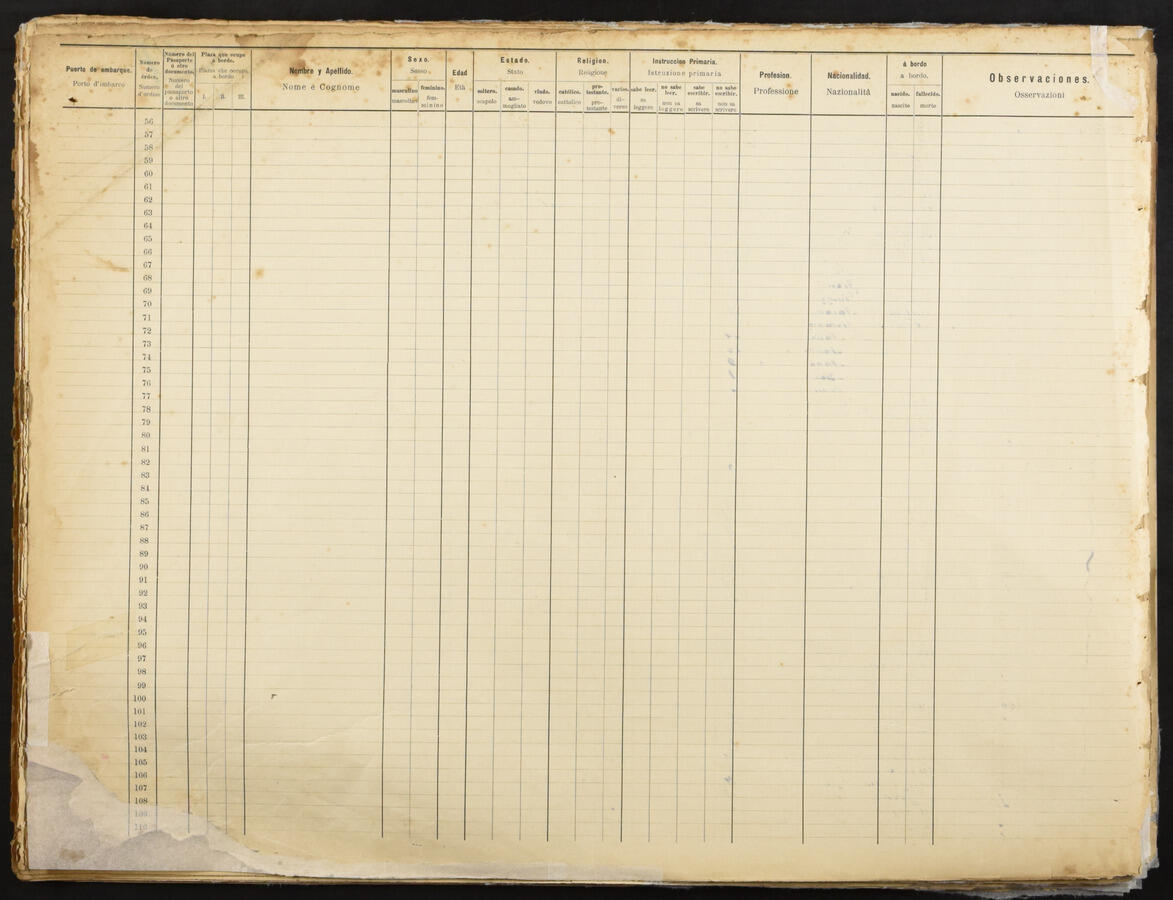 Puerto de embarque.
Porto d'imbarco
Número
de
órden.
Numero
d'ordine
Número del
Pasaporte
ó otro
documento.
Numero
del
passaporto
o altro
documento
Plaza que ocupa
á bordo.
Piazza che occupa
a bordo
I. II. III.
Nombre y Apellido.
Nome é Cognome
Sexo.
Sesso
masculino femenino.
mascolino fem-
minino
Edad
Età
Estado.
Stato
soltero. casado. viudo.
scapolo am-
mogliato vedovo
Religion.
Religione
católico. pro-
testante. varios.
cattolico pro-
testante di-
verso
Instruccion Primaria.
Istruzione primaria
sabe leer. no sabe
leer. sabe
escribir. no sabe
escribir.
sa
leggere non sa
leggere sa
scrivere non sa
scrivere
Profesion.
Professione
Nacionalidad.
Nazionalità
á bordo
a bordo.
nacido. fallecido.
nascite morte
Observaciones.
Osservazioni
56
57
58
59
60
61
62
63
64
65
66
67
68
69
70
71
72
73
74
75
76
77
78
79
80
81
82
83
84
85
86
87
88
89
90
91
92
93
94
95
96
97
98
99
100
101
102
103
104
105
106
107
108
109
110